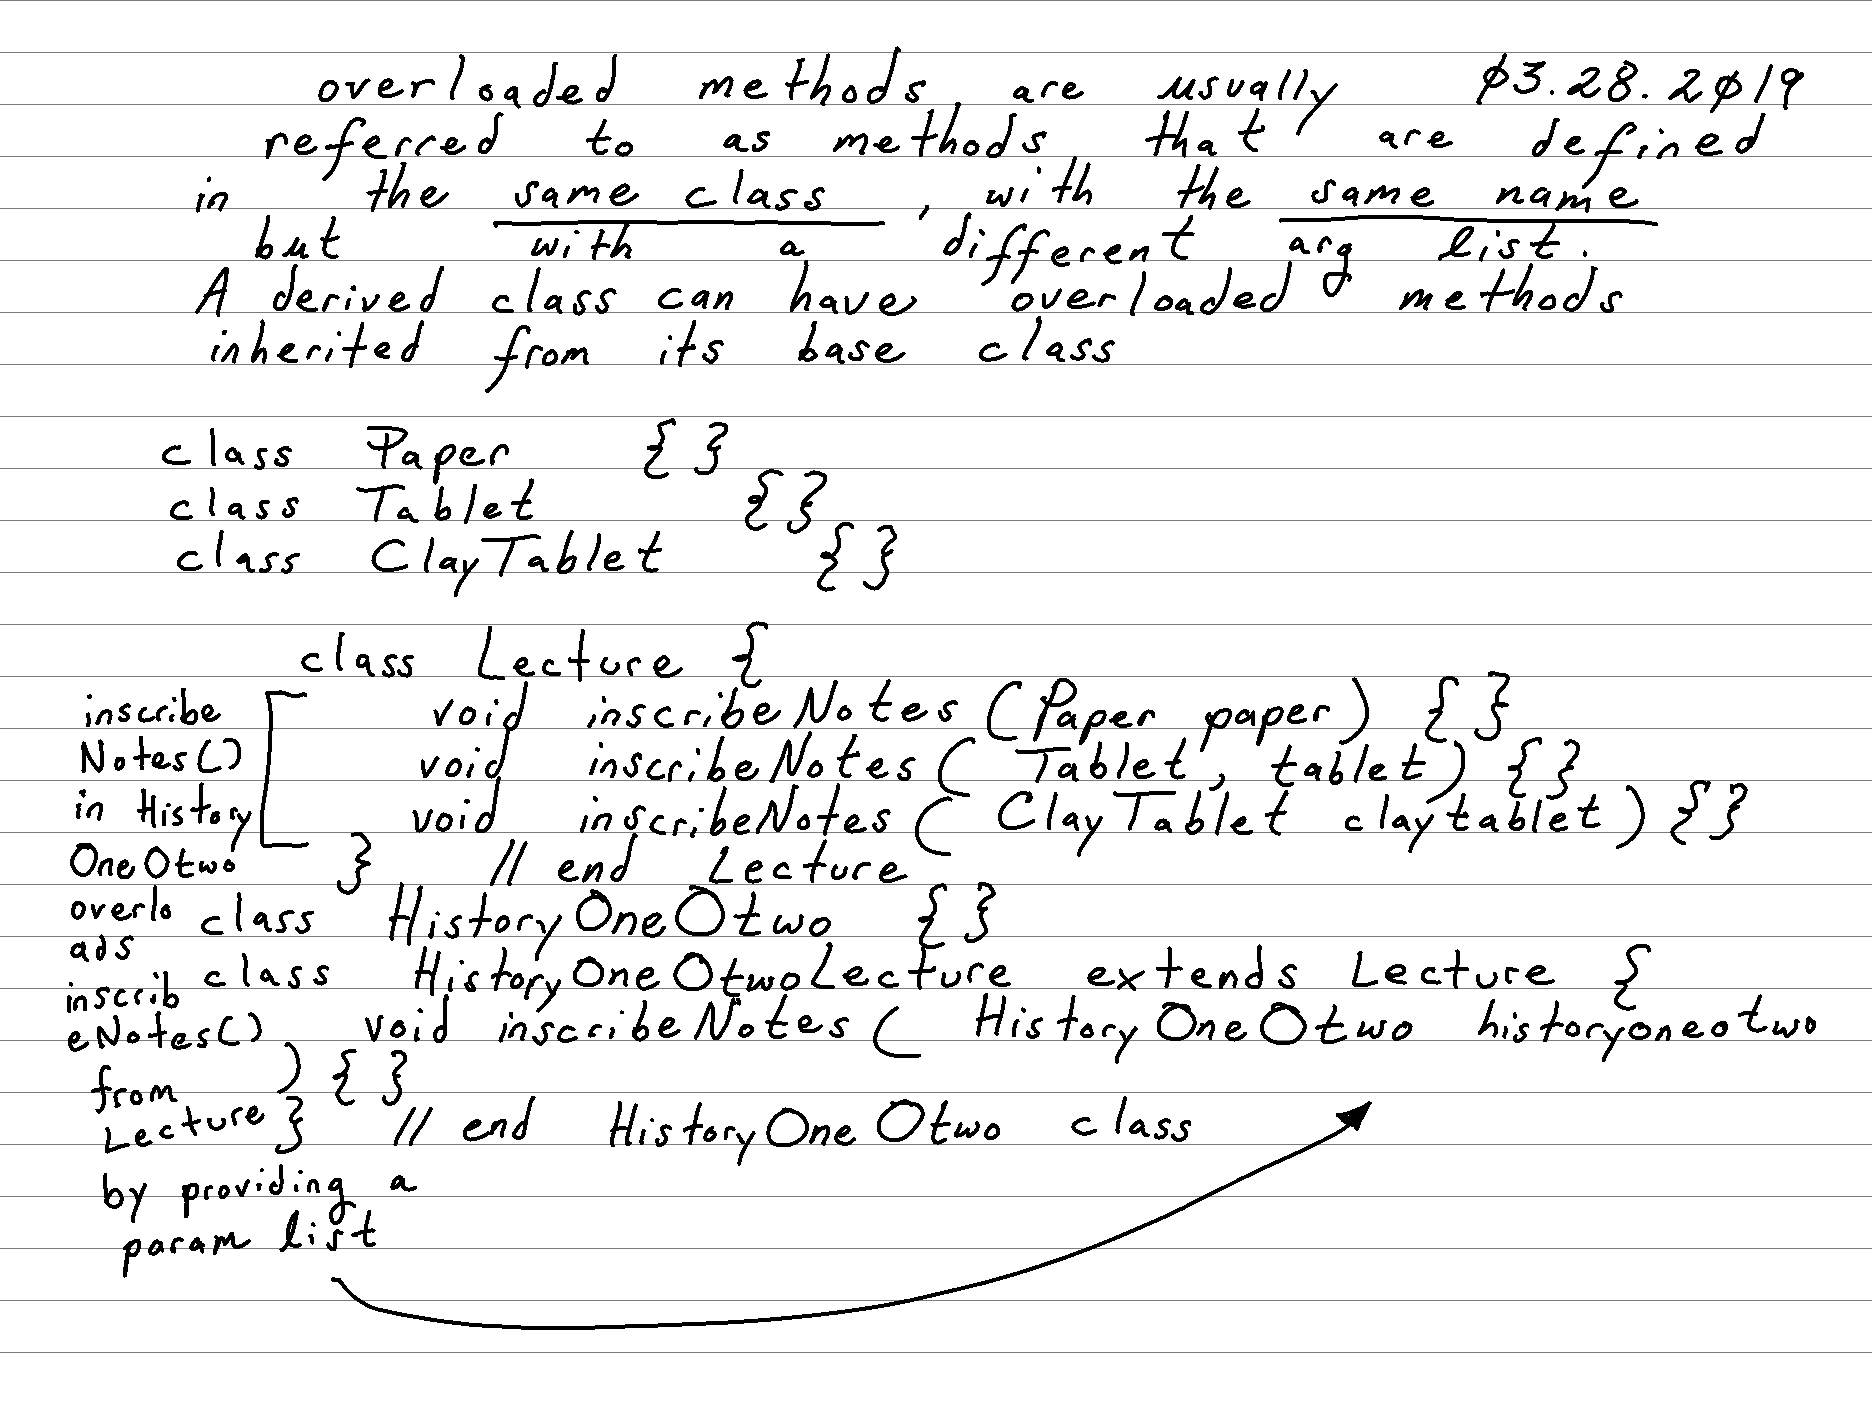 overloaded methods, are usually ϕ3.28.2ϕ19
referred to as methods, that are defined
in the same class, with the same name
but with a different arg list.
A derived class can have overloaded methods
inherited from its base class
class Paper { }
class Tablet { }
class ClayTablet { }
class Lecture {
void inscribeNotes (Paper paper) { }
void inscribeNotes ( Tablet, tablet) { }
void inscribeNotes ( ClayTablet claytablet ) { }
} // end Lecture
class HistoryOneOtwo { }
class HistoryOneOtwoLecture extends Lecture {
void inscribeNotes ( HistoryOneOtwo historyoneotwo
) { }
} // end HistoryOneOtwo class
inscribe
Notes()
in History
OneOtwo
overlo
ads
inscrib
eNotes()
from
Lecture
by providing a
param list